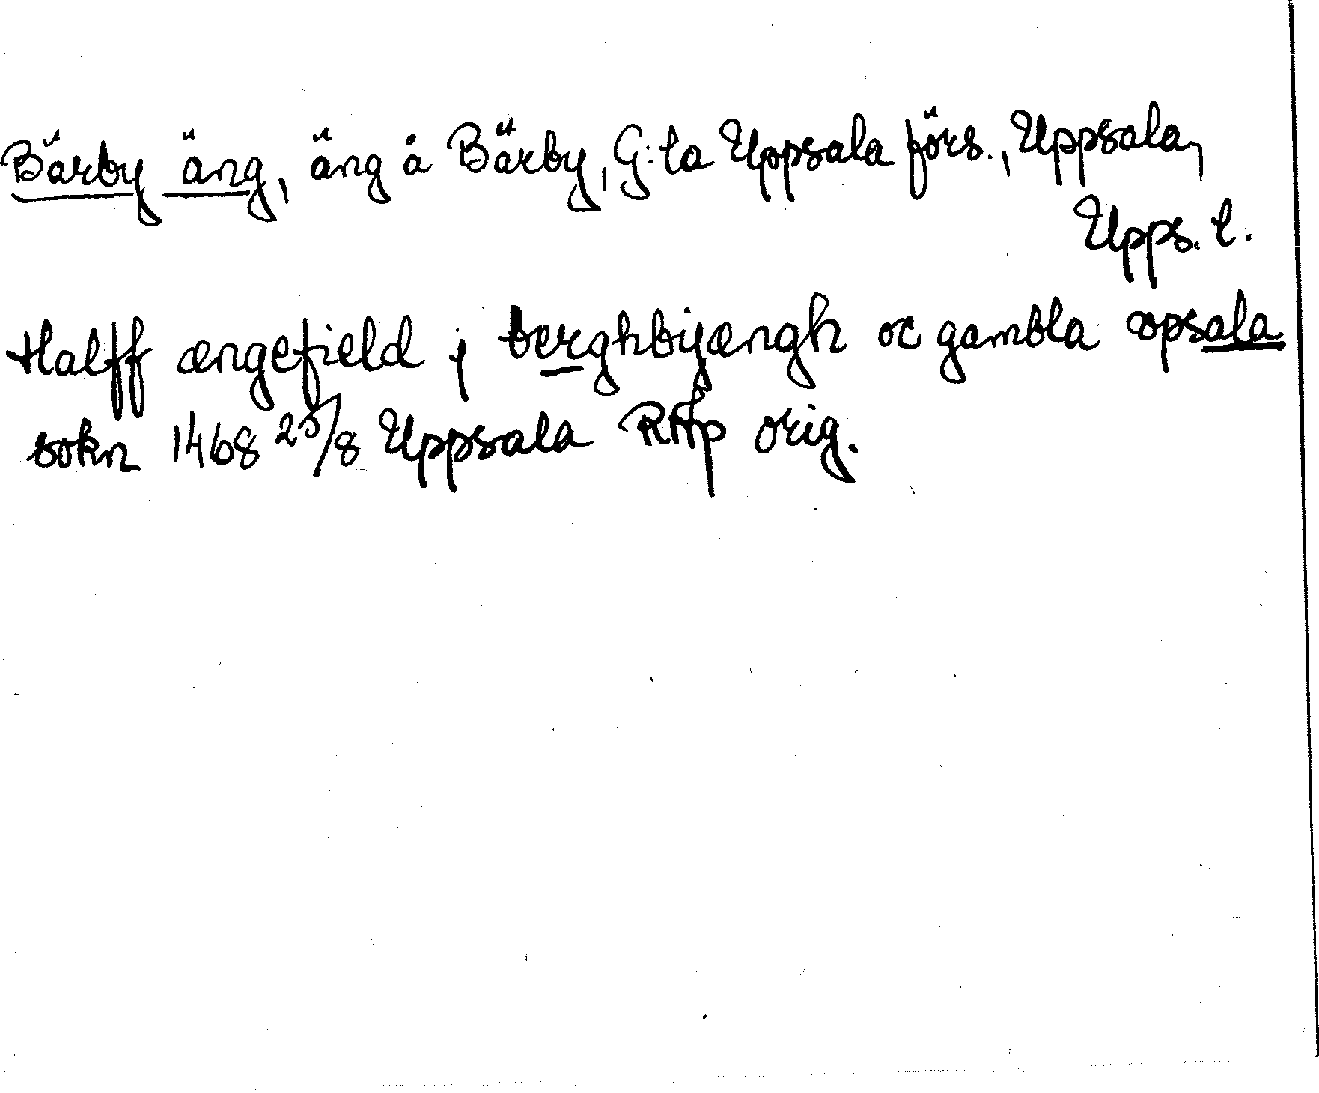 Bärby äng, äng å Bärby, G:la Uppsala förs., Uppsala,
Upps. l.
Halff ængefield j berghbyængh oc gambla opsala
sokn 1468 25/8 Uppsala RAp orig.